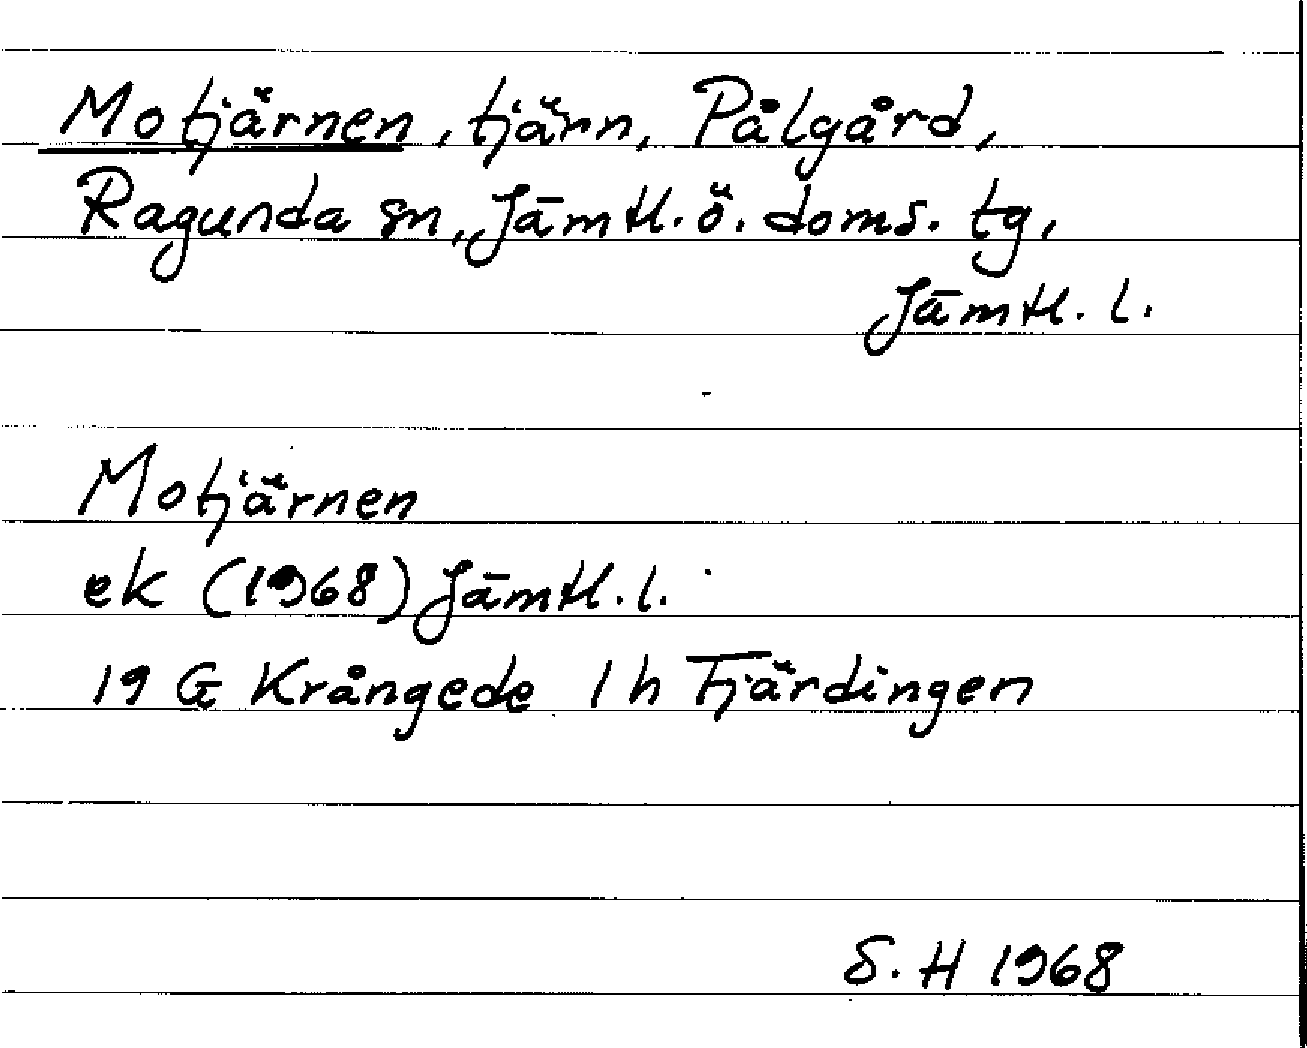 Motjärnen, tjärn, Pålgård,
Ragunda sn, Jämtl. ö. doms. tg,
Jämtl. l.
Motjärnen
ek (1968) Jämtl. l.
19 G Krångede 1 h Fjärdingen
S. H 1968